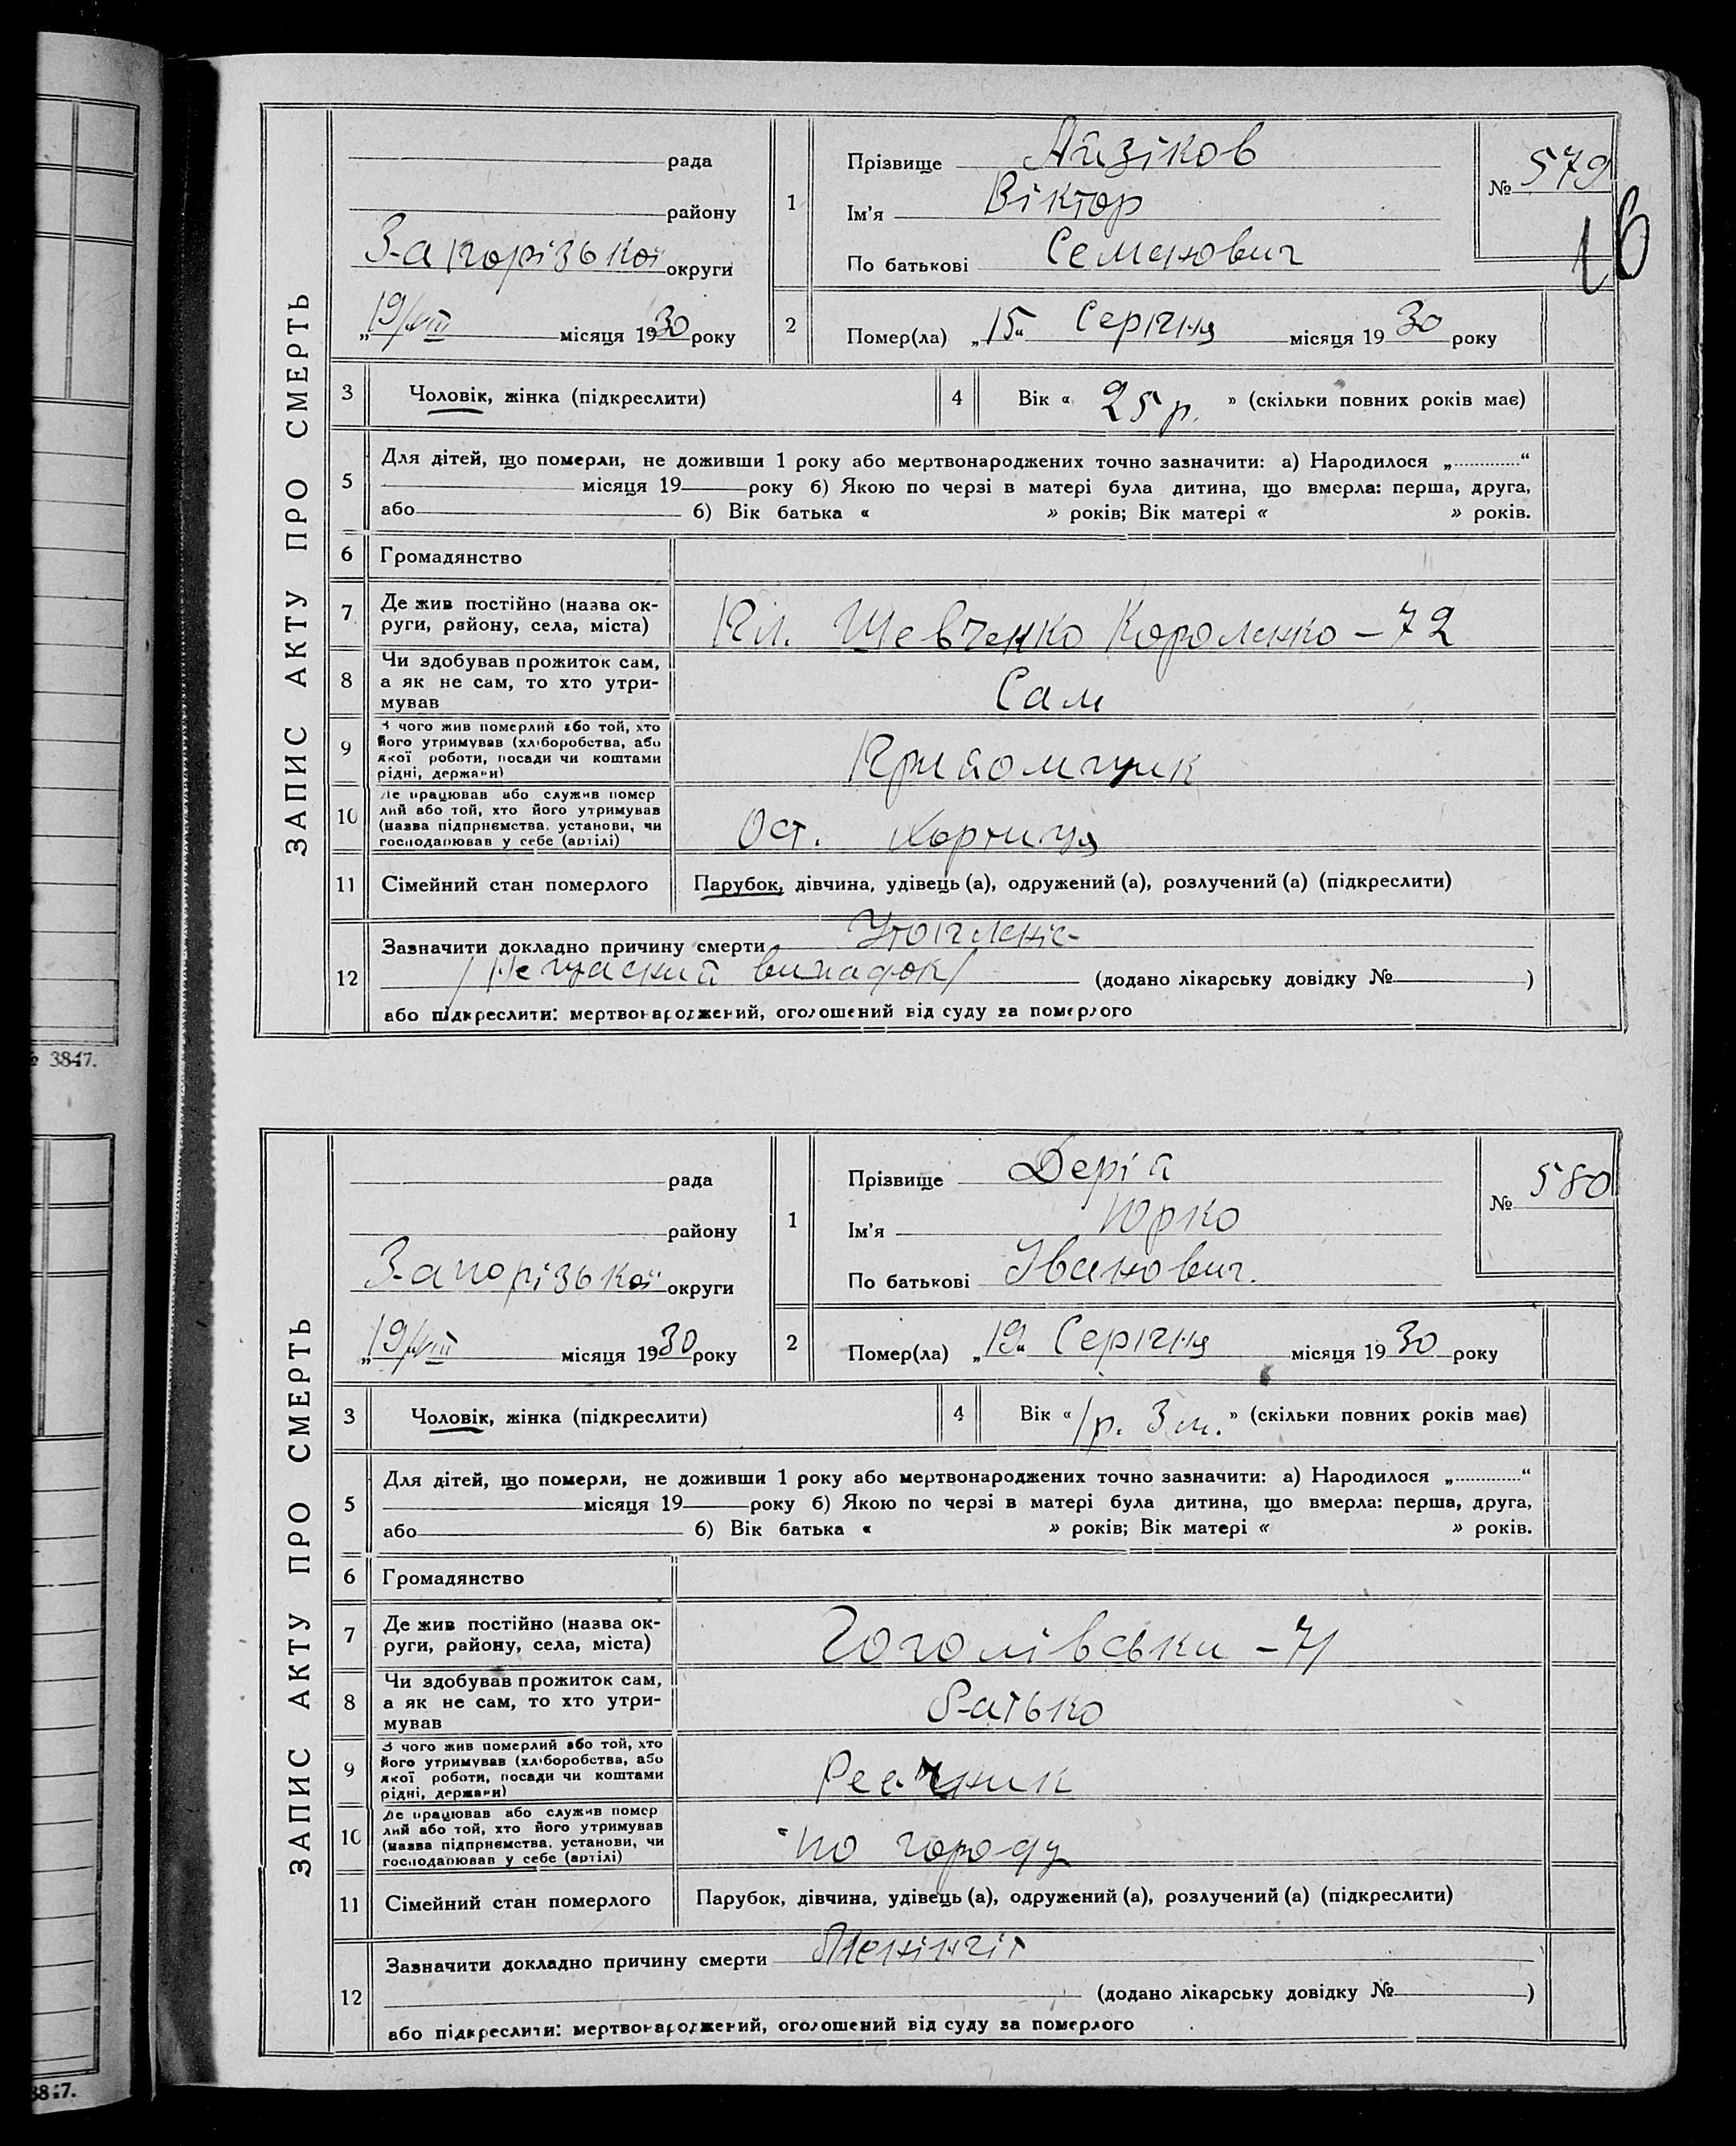 № 3847.
3847.
ЗАПИС АКТУ ПРО СМЕРТЬ
рада
району
Запорізької округи
„19/VIII місяця 1930 року
1
Прізвище Айзіков
Ім'я Віктор
По батькові Семенович
№ 579
16
2
Помер(ла) „15“ Серпня місяця 1930 року
3
Чоловік, жінка (підкреслити)
4
Вік « 25 р. » (скільки повних років має)
5
Для дітей, що померли, не доживши 1 року або мертвонароджених точно зазначити: а) Народилося „ “
місяця 19 року б) Якою по черзі в матері була дитина, що вмерла: перша, друга,
або б) Вік батька « » років; Вік матері « » років.
6
Громадянство
7
Де жив постійно (назва ок-
руги, району, села, міста)
Шевченко Короленко – 72
8
Чи здобував прожиток сам,
а як не сам, то хто утри-
мував
Сам
9
З чого жив померлий або той, хто
його утримував (хліборобства, або
якої роботи, посади чи коштами
рідні, держави)
Прийомщик
10
Де працював або служив помер
лий або той, хто його утримував
(назва підприємства, установи, чи
господарював у себе (артілі)
Ост. Хортиця
11
Сімейний стан померлого
Парубок, дівчина, удівець (а), одружений (а), розлучений (а) (підкреслити)
12
Зазначити докладно причину смерти Утопленіє
/Нещасний випадок/ (додано лікарську довідку № )
або підкреслити: мертвонароджений, оголошений від суду за померлого
ЗАПИС АКТУ ПРО СМЕРТЬ
рада
району
Запорізької округи
„19/VIII місяця 1930 року
1
Прізвище Дерій
Ім'я Юрко
По батькові Іванович.
№ 580
2
Помер(ла) „19“ Серпня місяця 1930 року
3
Чоловік, жінка (підкреслити)
4
Вік « 1 р. 3 м. » (скільки повних років має)
5
Для дітей, що померли, не доживши 1 року або мертвонароджених точно зазначити: а) Народилося „ “
місяця 19 року б) Якою по черзі в матері була дитина, що вмерла: перша, друга,
або б) Вік батька « » років; Вік матері « » років.
6
Громадянство
7
Де жив постійно (назва ок-
руги, району, села, міста)
Гоголівська – 71
8
Чи здобував прожиток сам,
а як не сам, то хто утри-
мував
батько
9
З чого жив померлий або той, хто
його утримував (хліборобства, або
якої роботи, посади чи коштами
рідні, держави)
10
Де працював або служив помер
лий або той, хто його утримував
(назва підприємства, установи, чи
господарював у себе (артілі)
по городу
11
Сімейний стан померлого
Парубок, дівчина, удівець (а), одружений (а), розлучений (а) (підкреслити)
12
Зазначити докладно причину смерти Менінгіт
(додано лікарську довідку № )
або підкреслити: мертвонароджений, оголошений від суду за померлого